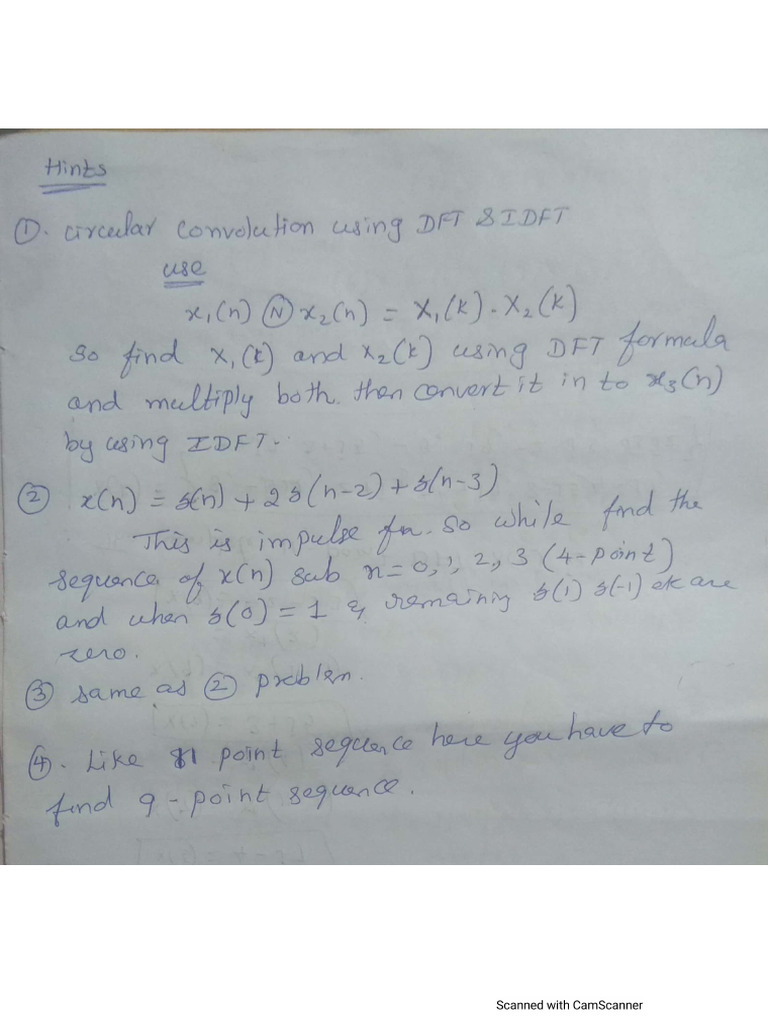 Hints
①. circular convolution using DFT & IDFT
use
x₁(n) Ⓝ x₂(n) = X₁(k) . X₂(k)
so find X₁(k) and X₂(k) using DFT formula
and multiply both. then convert it in to x₃(n)
by using IDFT.
② x(n) = δ(n) + 2δ(n-2) + δ(n-3)
This is impulse fn. so while find the
sequence of x(n) sub n=0, 1, 2, 3 (4-point)
and when δ(0) = 1 & remaining δ(1) δ(-1) etc are
zero.
③ same as ② problem.
④. Like 8 point sequence here you have to
find 9 - point sequence.
Scanned with CamScanner